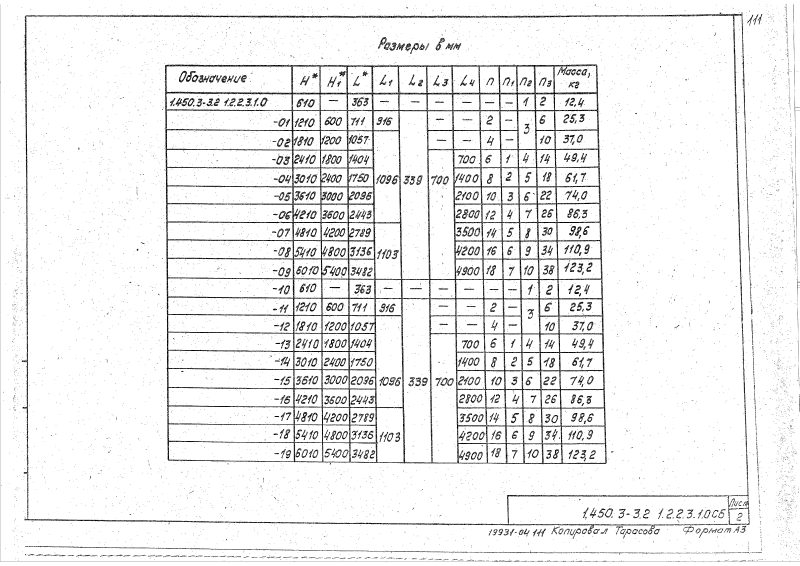 111
Размеры в мм
Обозначение H* H1* L* L1 L2 L3 L4 n n1 n2 n3 Масса, кг
1.450.3-3.2 1.2.2.3.1.0 610 — 363 — — — — — — 1 2 12,4
-01 1210 600 711 916 339 — — 2 — 3 6 25,3
-02 1810 1200 1057 1096 — — 4 — 10 37,0
-03 2410 1800 1404 700 700 6 1 4 14 49,4
-04 3010 2400 1750 1400 8 2 5 18 61,7
-05 3610 3000 2096 2100 10 3 6 22 74,0
-06 4210 3600 2443 2800 12 4 7 26 86,3
-07 4810 4200 2789 1103 3500 14 5 8 30 98,6
-08 5410 4800 3136 4200 16 6 9 34 110,9
-09 6010 5400 3482 4900 18 7 10 38 123,2
-10 610 — 363 — — — — — — 1 2 12,4
-11 1210 600 711 916 339 — — 2 — 3 6 25,3
-12 1810 1200 1057 1096 — — 4 — 10 37,0
-13 2410 1800 1404 700 700 6 1 4 14 49,4
-14 3010 2400 1750 1400 8 2 5 18 61,7
-15 3610 3000 2096 2100 10 3 6 22 74,0
-16 4210 3600 2443 2800 12 4 7 26 86,3
-17 4810 4200 2789 1103 3500 14 5 8 30 98,6
-18 5410 4800 3136 4200 16 6 9 34 110,9
-19 6010 5400 3482 4900 18 7 10 38 123,2
1.450.3-3.2 1.2.2.3.1.0СБ
Лист
2
19931-04 111 Копировал Тарасова Формат А3